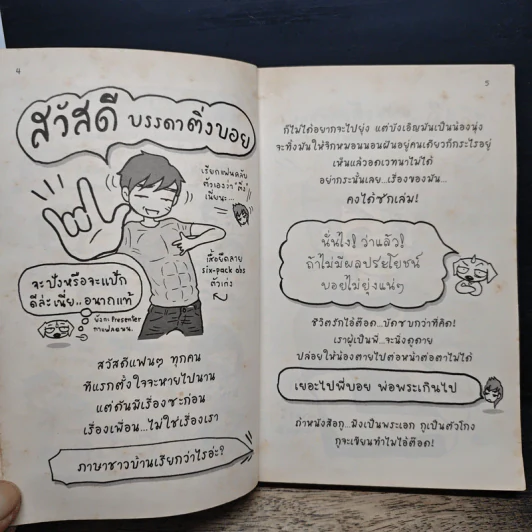 4
สวัสดี บรรดาติ่งบอย
เรียกแฟนคลับ
ตัวเองว่า "ติ่ง"
เนี่ยนะ...
จะปังหรือจะแป้ก
ดีล่ะเนี่ย..อนาถแท้
เสื้อยืดลาย
six-pack abs
ตัวเก่ง
สวัสดีแฟนๆ ทุกคน
ทีแรกตั้งใจจะหายไปนาน
แต่ดันมีเรื่องซะก่อน
เรื่องเพื่อน...ไม่ใช่เรื่องเรา
ภาษาชาวบ้านเรียกว่าไรอ่ะ?
5
ก็ไม่ได้อยากจะไปยุ่ง แต่บังเอิญมันเป็นน้องนุ่ง
จะทิ้งมันให้จิกหมอนนอนฝันอยู่คนเดียวก็กระไรอยู่
เห็นแล้วอดเวทนาไม่ได้
อย่ากระนั้นเลย...เรื่องของมัน...
คงได้ซักเล่ม!
นั่นไง! ว่าแล้ว!
ถ้าไม่มีผลประโยชน์
บอยไม่ยุ่งแน่ๆ
ชีวิตรักไอ้ต๊อด...บัดซบกว่าที่คิด!
เราผู้เป็นพี่...จะนิ่งดูดาย
ปล่อยให้น้องตายไปต่อหน้าต่อตาไม่ได้
เยอะไปพี่บอย พ่อพระเกินไป
ถ้าหนังสือกู...มึงเป็นพระเอก กูเป็นตัวโกง
กูจะเขียนทำไมไอ้ต๊อด!